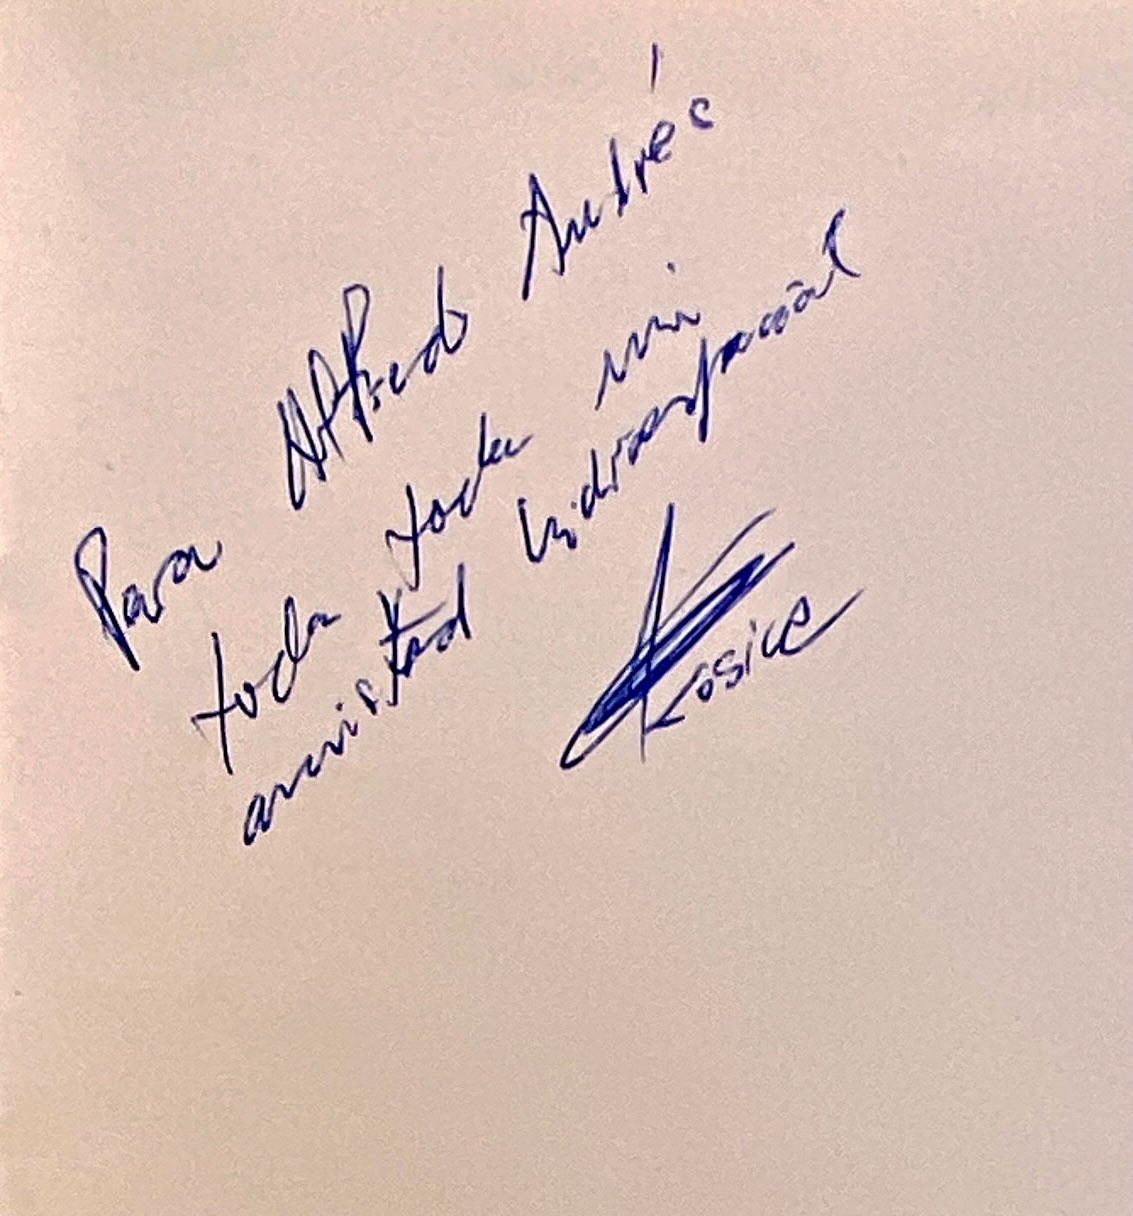 Para Alfredo Andrés
toda toda mi
amistad hidroespacial
Kosice